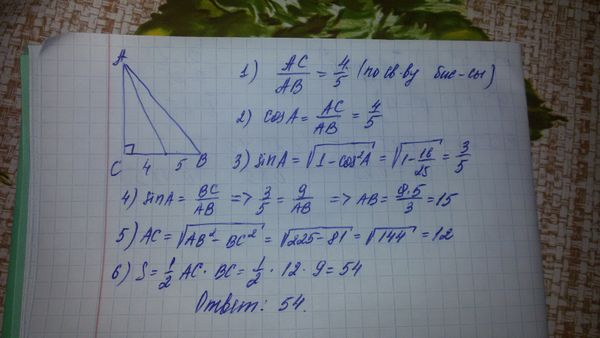 A
C 4 5 B
1) AC/AB = 4/5 (по св-ву бис-сы)
2) cosA = AC/AB = 4/5
3) sinA = √(1 - cos²A) = √(1 - 16/25) = 3/5
4) sinA = BC/AB => 3/5 = 9/AB => AB = 9·5/3 = 15
5) AC = √(AB² - BC²) = √(225 - 81) = √144 = 12
6) S = 1/2 AC · BC = 1/2 · 12 · 9 = 54
Ответ: 54.